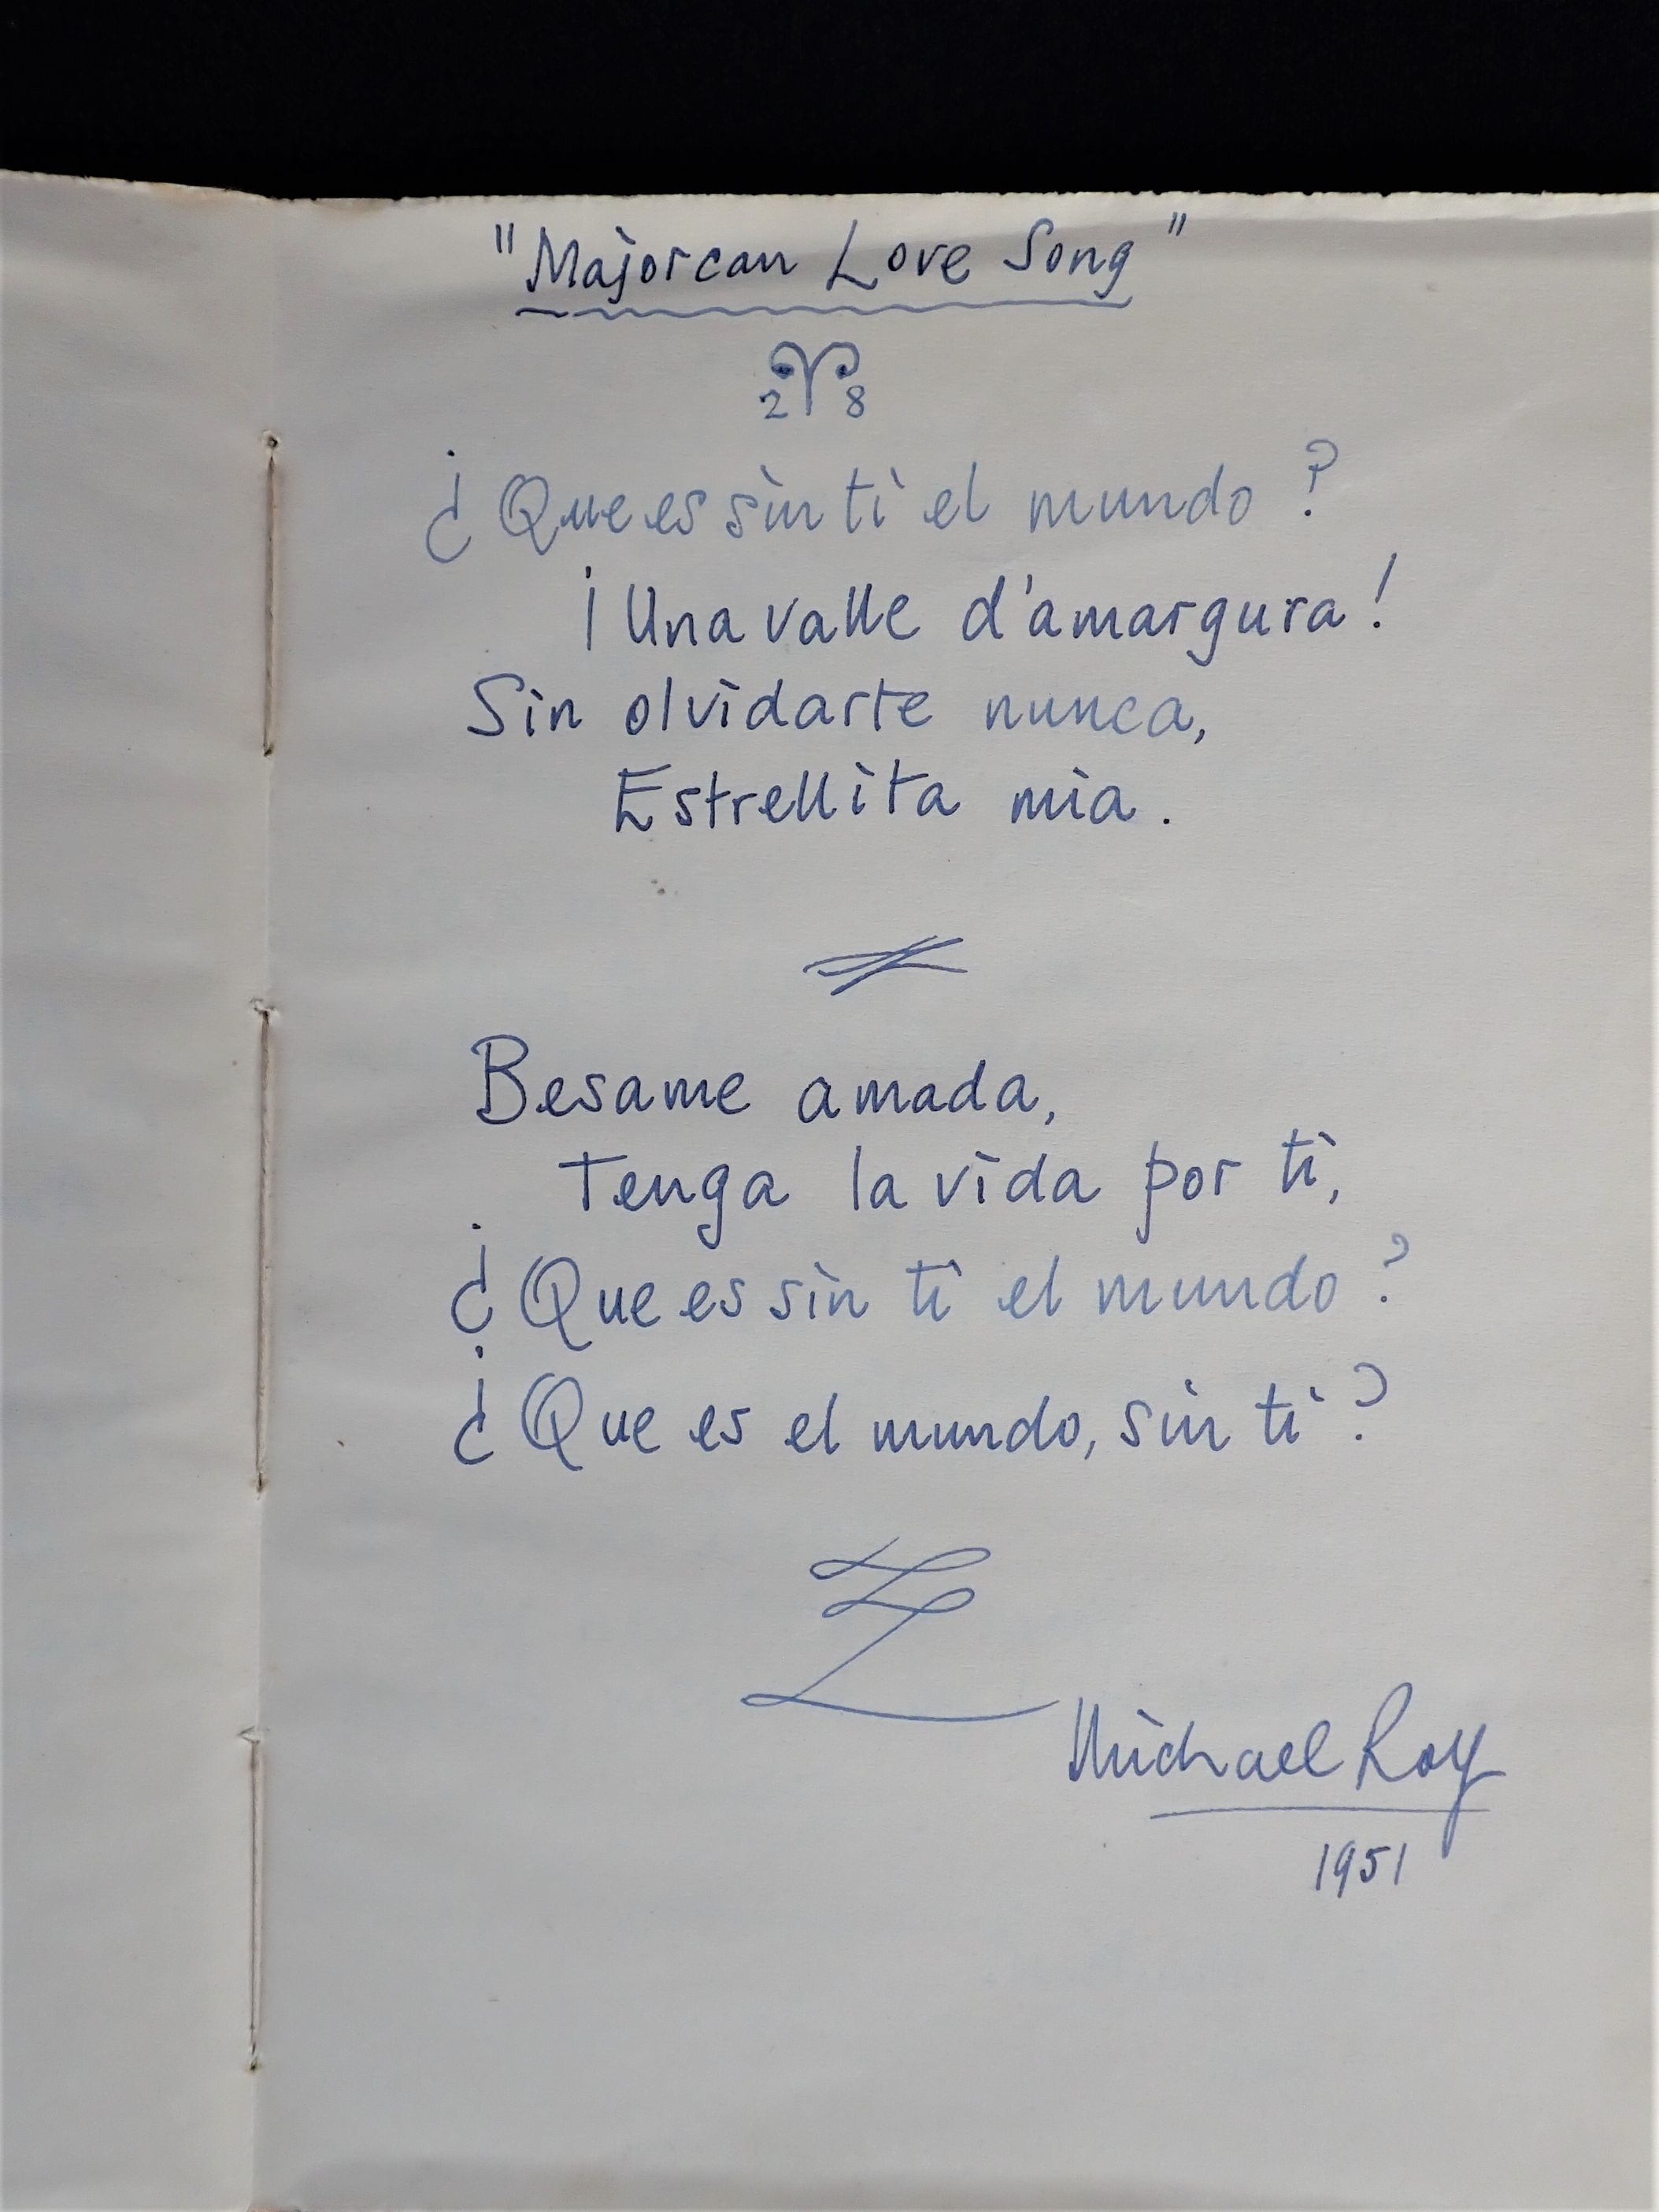 "Majorcan Love Song"
2 8
¿Que es sin ti el mundo?
¡Una valle d'amargura!
Sin olvidarte nunca,
Estrellita mia.
Besame amada,
Tenga la vida por ti,
¿Que es sin ti el mundo?
¿Que es el mundo, sin ti?
Michael Roy
1951